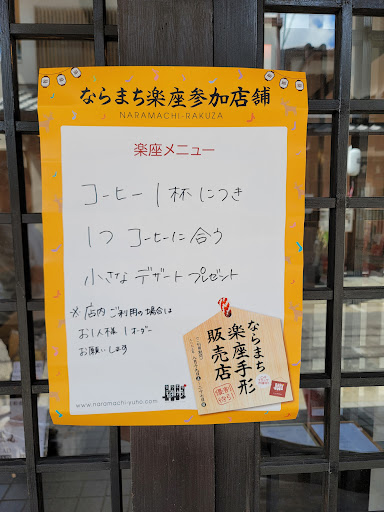 ならまち楽座参加店舗
NARAMACHI-RAKUZA
楽座メニュー
コーヒー 1杯につき
1つ コーヒーに合う
小さな デザート プレゼント
※店内ご利用の場合は
お1人様 1オーダー
お願いします
ならまち
楽座手形
販売店
www.naramachi-yuho.com